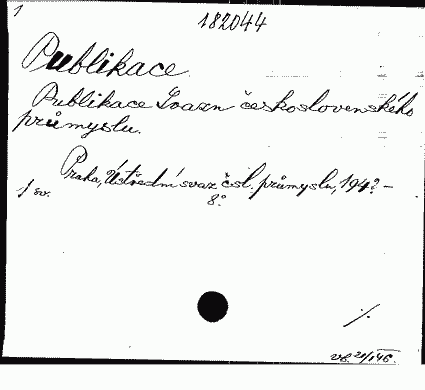 1
182044
Publikace.
Publikace Svazu československého
průmyslu.
Praha, Ústřední svaz čsl. průmyslu, 194?-
8°
1 sv.